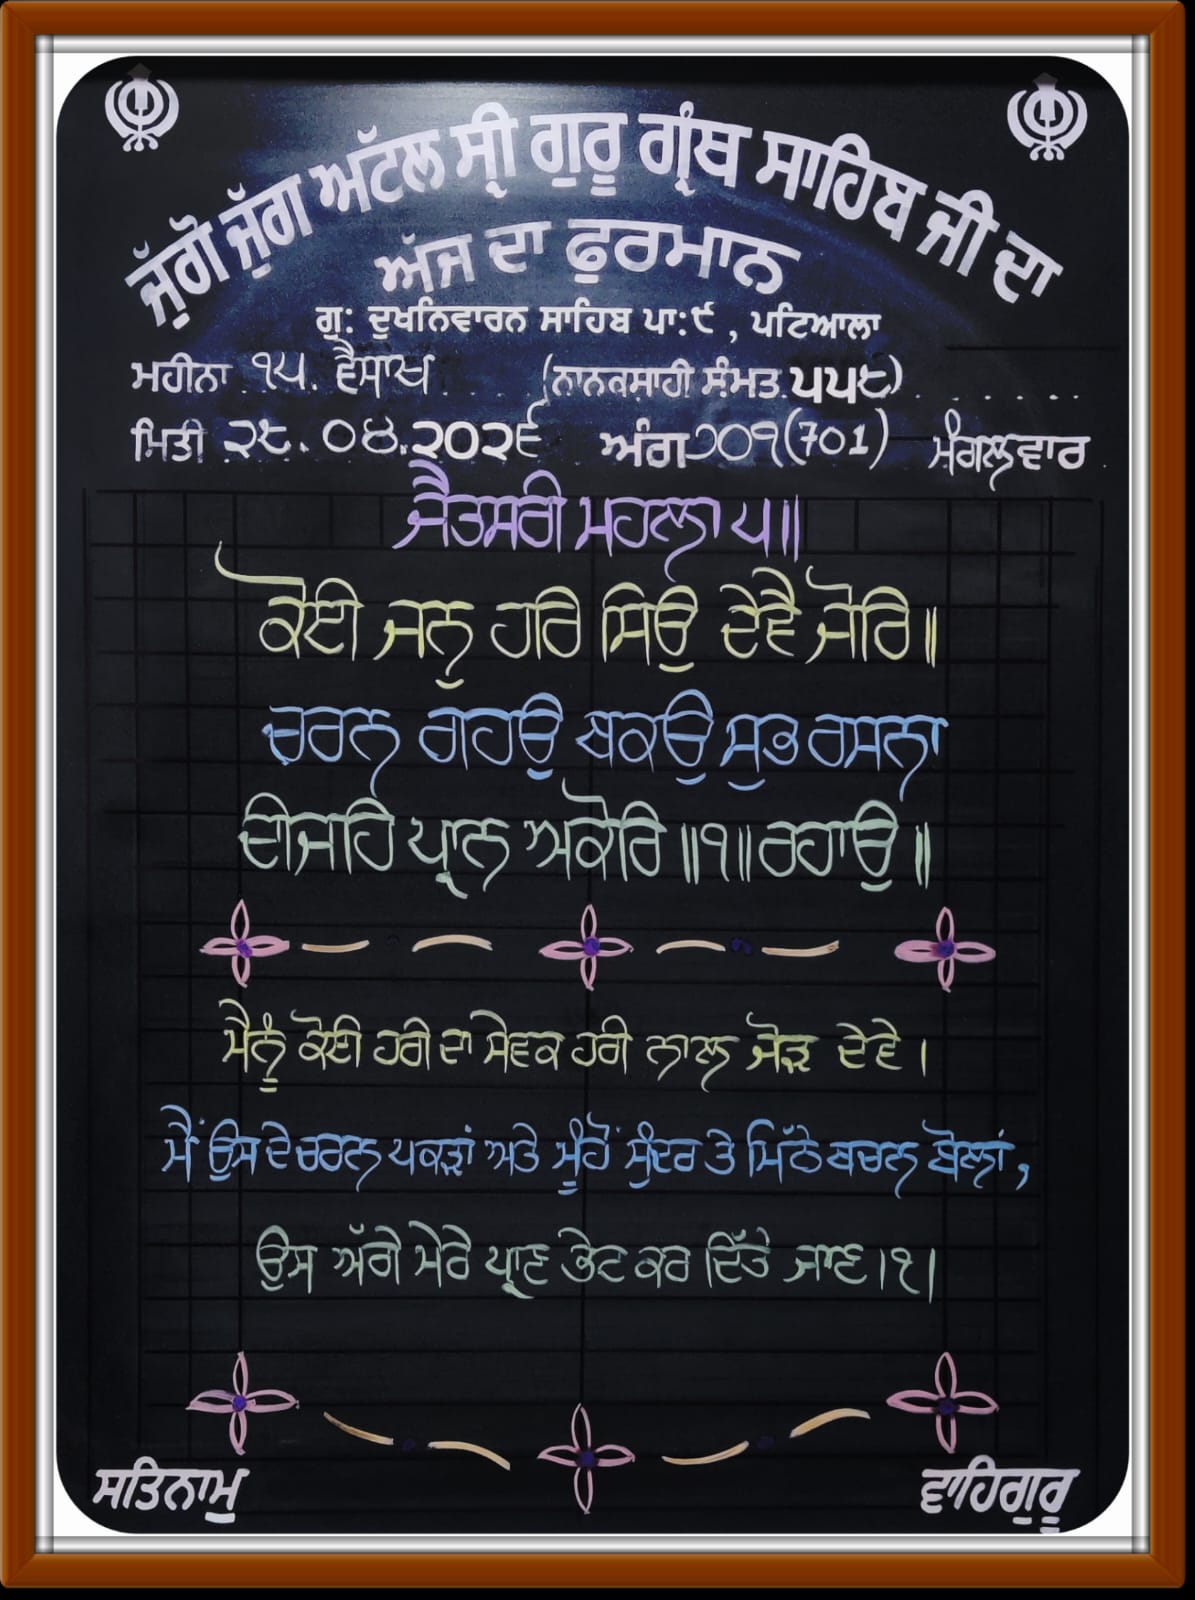 ਜੁੱਗੋ ਜੁੱਗ ਅਟੱਲ ਸ੍ਰੀ ਗੁਰੂ ਗ੍ਰੰਥ ਸਾਹਿਬ ਜੀ ਦਾ
ਅੱਜ ਦਾ ਫੁਰਮਾਨ
ਗੁ: ਦੁਖਨਿਵਾਰਨ ਸਾਹਿਬ ਪਾ:੯ , ਪਟਿਆਲਾ
ਮਹੀਨਾ ੧੫. ਵੈਸਾਖ (ਨਾਨਕਸ਼ਾਹੀ ਸੰਮਤ ੫੫੮)
ਮਿਤੀ ੨੮.੦੪.੨੦੨੬ ਅੰਗ ੭੦੧(701) ਮੰਗਲਵਾਰ
ਜੈਤਸਰੀ ਮਹਲਾ ੫॥
ਕੋਈ ਜਨੁ ਹਰਿ ਸਿਉ ਦੇਵੈ ਜੋਰਿ॥
ਚਰਨ ਗਹਉ ਬਕਉ ਸੁਭ ਰਸਨਾ
ਦੀਜਹਿ ਪ੍ਰਾਨ ਅਕੋਰਿ॥੧॥ਰਹਾਉ॥
ਮੈਨੂੰ ਕੋਈ ਹਰੀ ਦਾ ਸੇਵਕ ਹਰੀ ਨਾਲ ਜੋੜ ਦੇਵੇ।
ਮੈਂ ਉਸ ਦੇ ਚਰਨ ਪਕੜਾਂ ਅਤੇ ਮੂੰਹੋਂ ਸੁੰਦਰ ਤੇ ਮਿੱਠੇ ਬਚਨ ਬੋਲਾਂ,
ਉਸ ਅੱਗੈ ਮੇਰੈ ਪ੍ਰਾਣ ਭੇਟ ਕਰ ਦਿੱਤੇ ਜਾਣ।੧।
ਸਤਿਨਾਮੁ ਵਾਹਿਗੁਰੂ